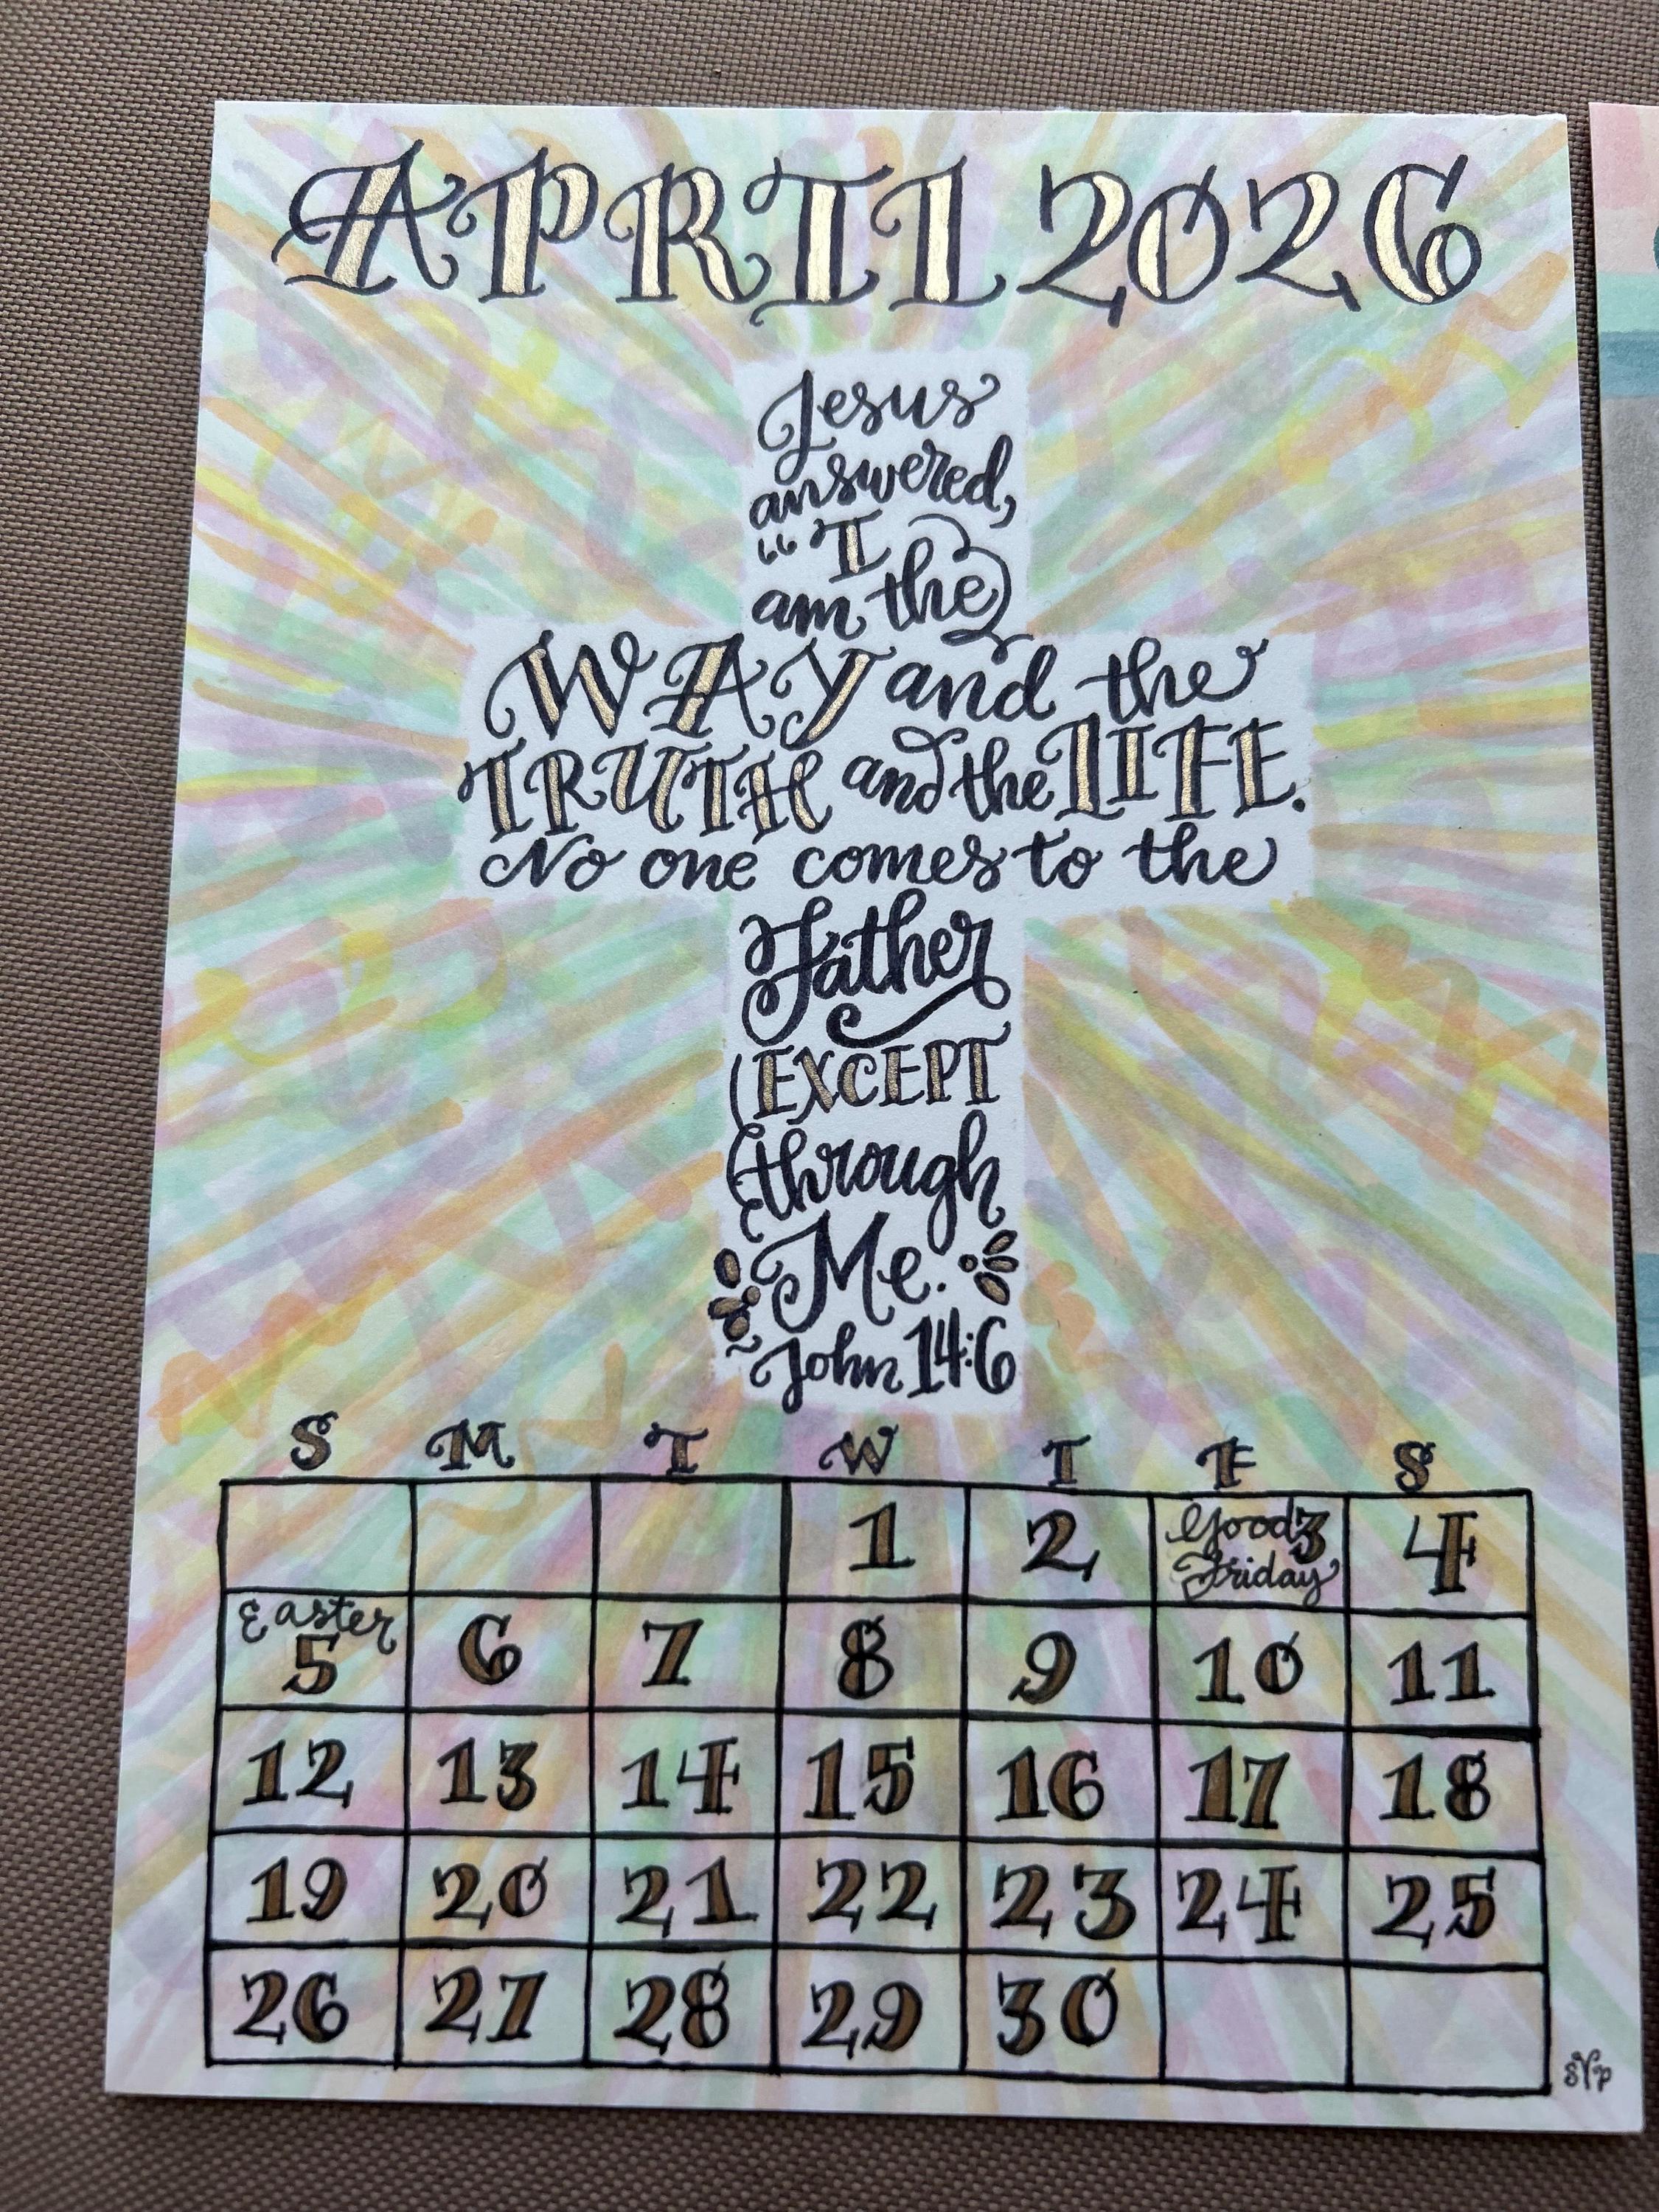 APRIL 2026
Jesus
answered,
"I
am the
WAY and the
TRUTH and the LIFE.
No one comes to the
Father
EXCEPT
through
Me.
John 14:6
S M T W T F S
1 2 Good 3 Friday 4
Easter
5 6 7 8 9 10 11
12 13 14 15 16 17 18
19 20 21 22 23 24 25
26 27 28 29 30